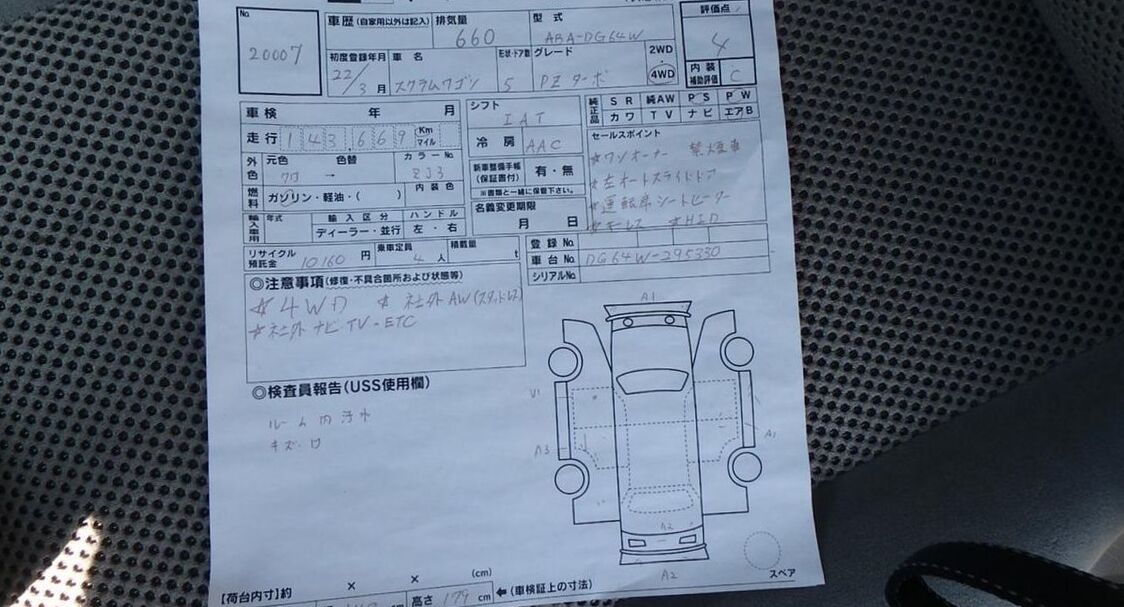 No. 20007
車歴 (自家用以外は記入) 排気量 660 型式 ABA-DG64W 評価点 4
初度登録年月 22/3月 車名 スクラムワゴン 形状・ドア数 5 グレード PZ ターボ 2WD 4WD 内装補助評価 C
車検 年 月 シフト IAT 純正品 SR 純AW PS PW
カワ TV ナビ エアB
走行 143,669 Km マイル 冷房 AAC セールスポイント
外色 元色 クロ 色替 → カラーNo. ZJ3 新車整備手帳(保証書付) 有・無 ☆ワンオーナー 禁煙車
※書類と一緒に保管下さい。 ☆左オートスライドドア
燃料 ガソリン・軽油・( ) 内装色 名義変更期限 ☆運転席シートヒーター
輸入車用 年式 輸入区分 ハンドル 月 日 ☆キーレス ☆HID
ディーラー・並行 左・右
リサイクル預託金 10160 円 乗車定員 4人 積載量 t 登録No.
車台No. DG64W-295330
シリアルNo.
◎注意事項(修復・不具合箇所および状態等)
☆4WD ☆社外AW(スタッドレス)
☆社外ナビ.TV-ETC
◎検査員報告(USS使用欄)
ルーム内汚れ
キズ・
A1
U1
A3
A1
A2
A2
スペア
【荷台内寸】約 × × (cm)
高さ 179 cm ←(車検証上の寸法)